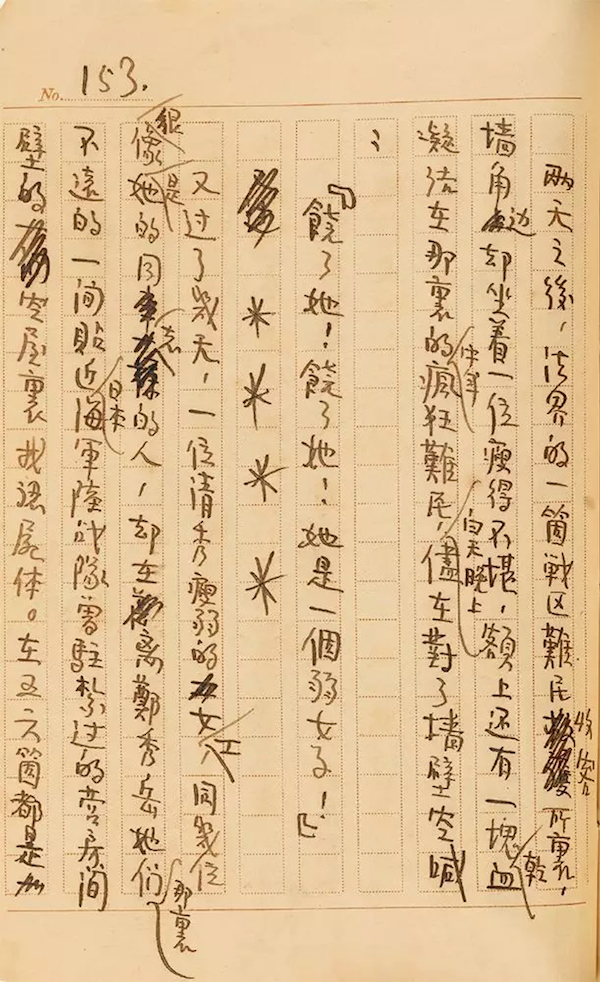 No. 153.
两天之後，法界的一箇戦区難民收容所裏，
墙角边却坐着一位瘦得不堪，额上还有一块乾血
凝结在那裏的中年疯狂難民，白天晚上儘在對了墙壁空喊
：
『饒了她！饒了她！她是一個弱女子！』
＊＊＊＊
又过了幾天，一位清秀瘦弱的女工，同幾位
很像是她的同志的人，却在离鄭秀岳她们那裏
不遠的一间貼近日本海軍陸战隊曾駐紮过的营房间
壁的空屋裏找認屍体。在五六箇都是